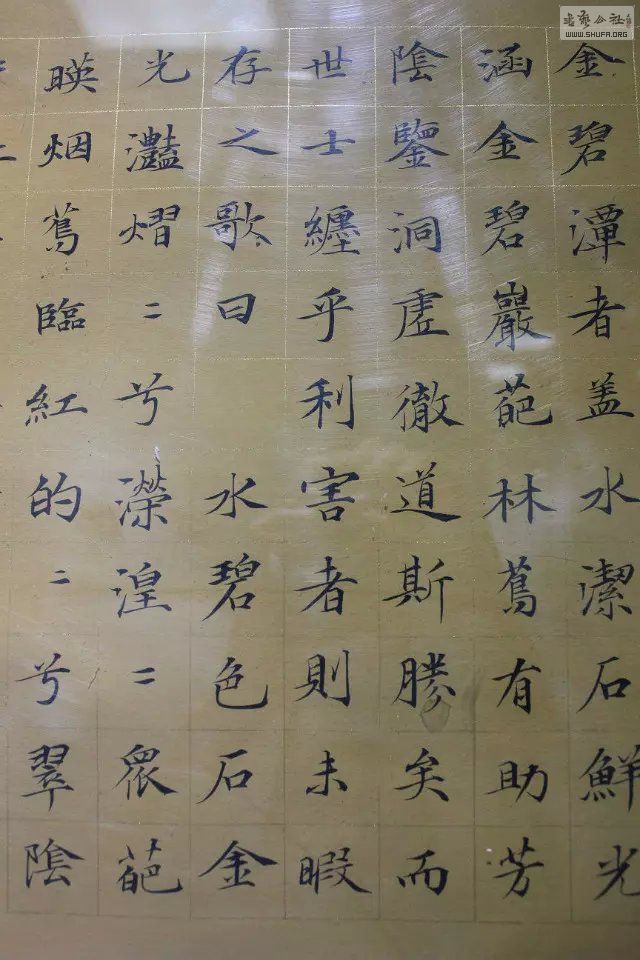 書藝公社
WWW.SHUFA.ORG
金碧潭者盖水潔石鮮光
涵金碧巖葩林蔦有助芳
陰鑒洞虛徹道斯勝矣而
世士纏乎利害者則未暇
存之歌曰 水碧色石金
光灩熠〻兮濴湟〻眾葩
暎烟蔦臨紅的〻兮翠陰